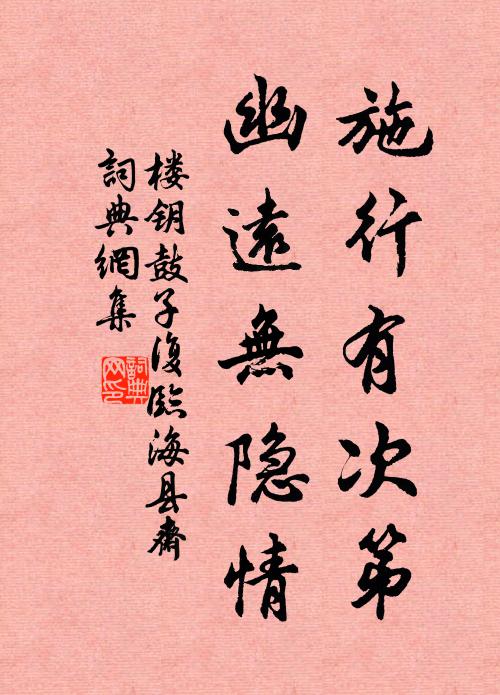 施行有次第
幽遠無隐情
楼钥鼓子復臨海县斋
詞典網集
詞典網印